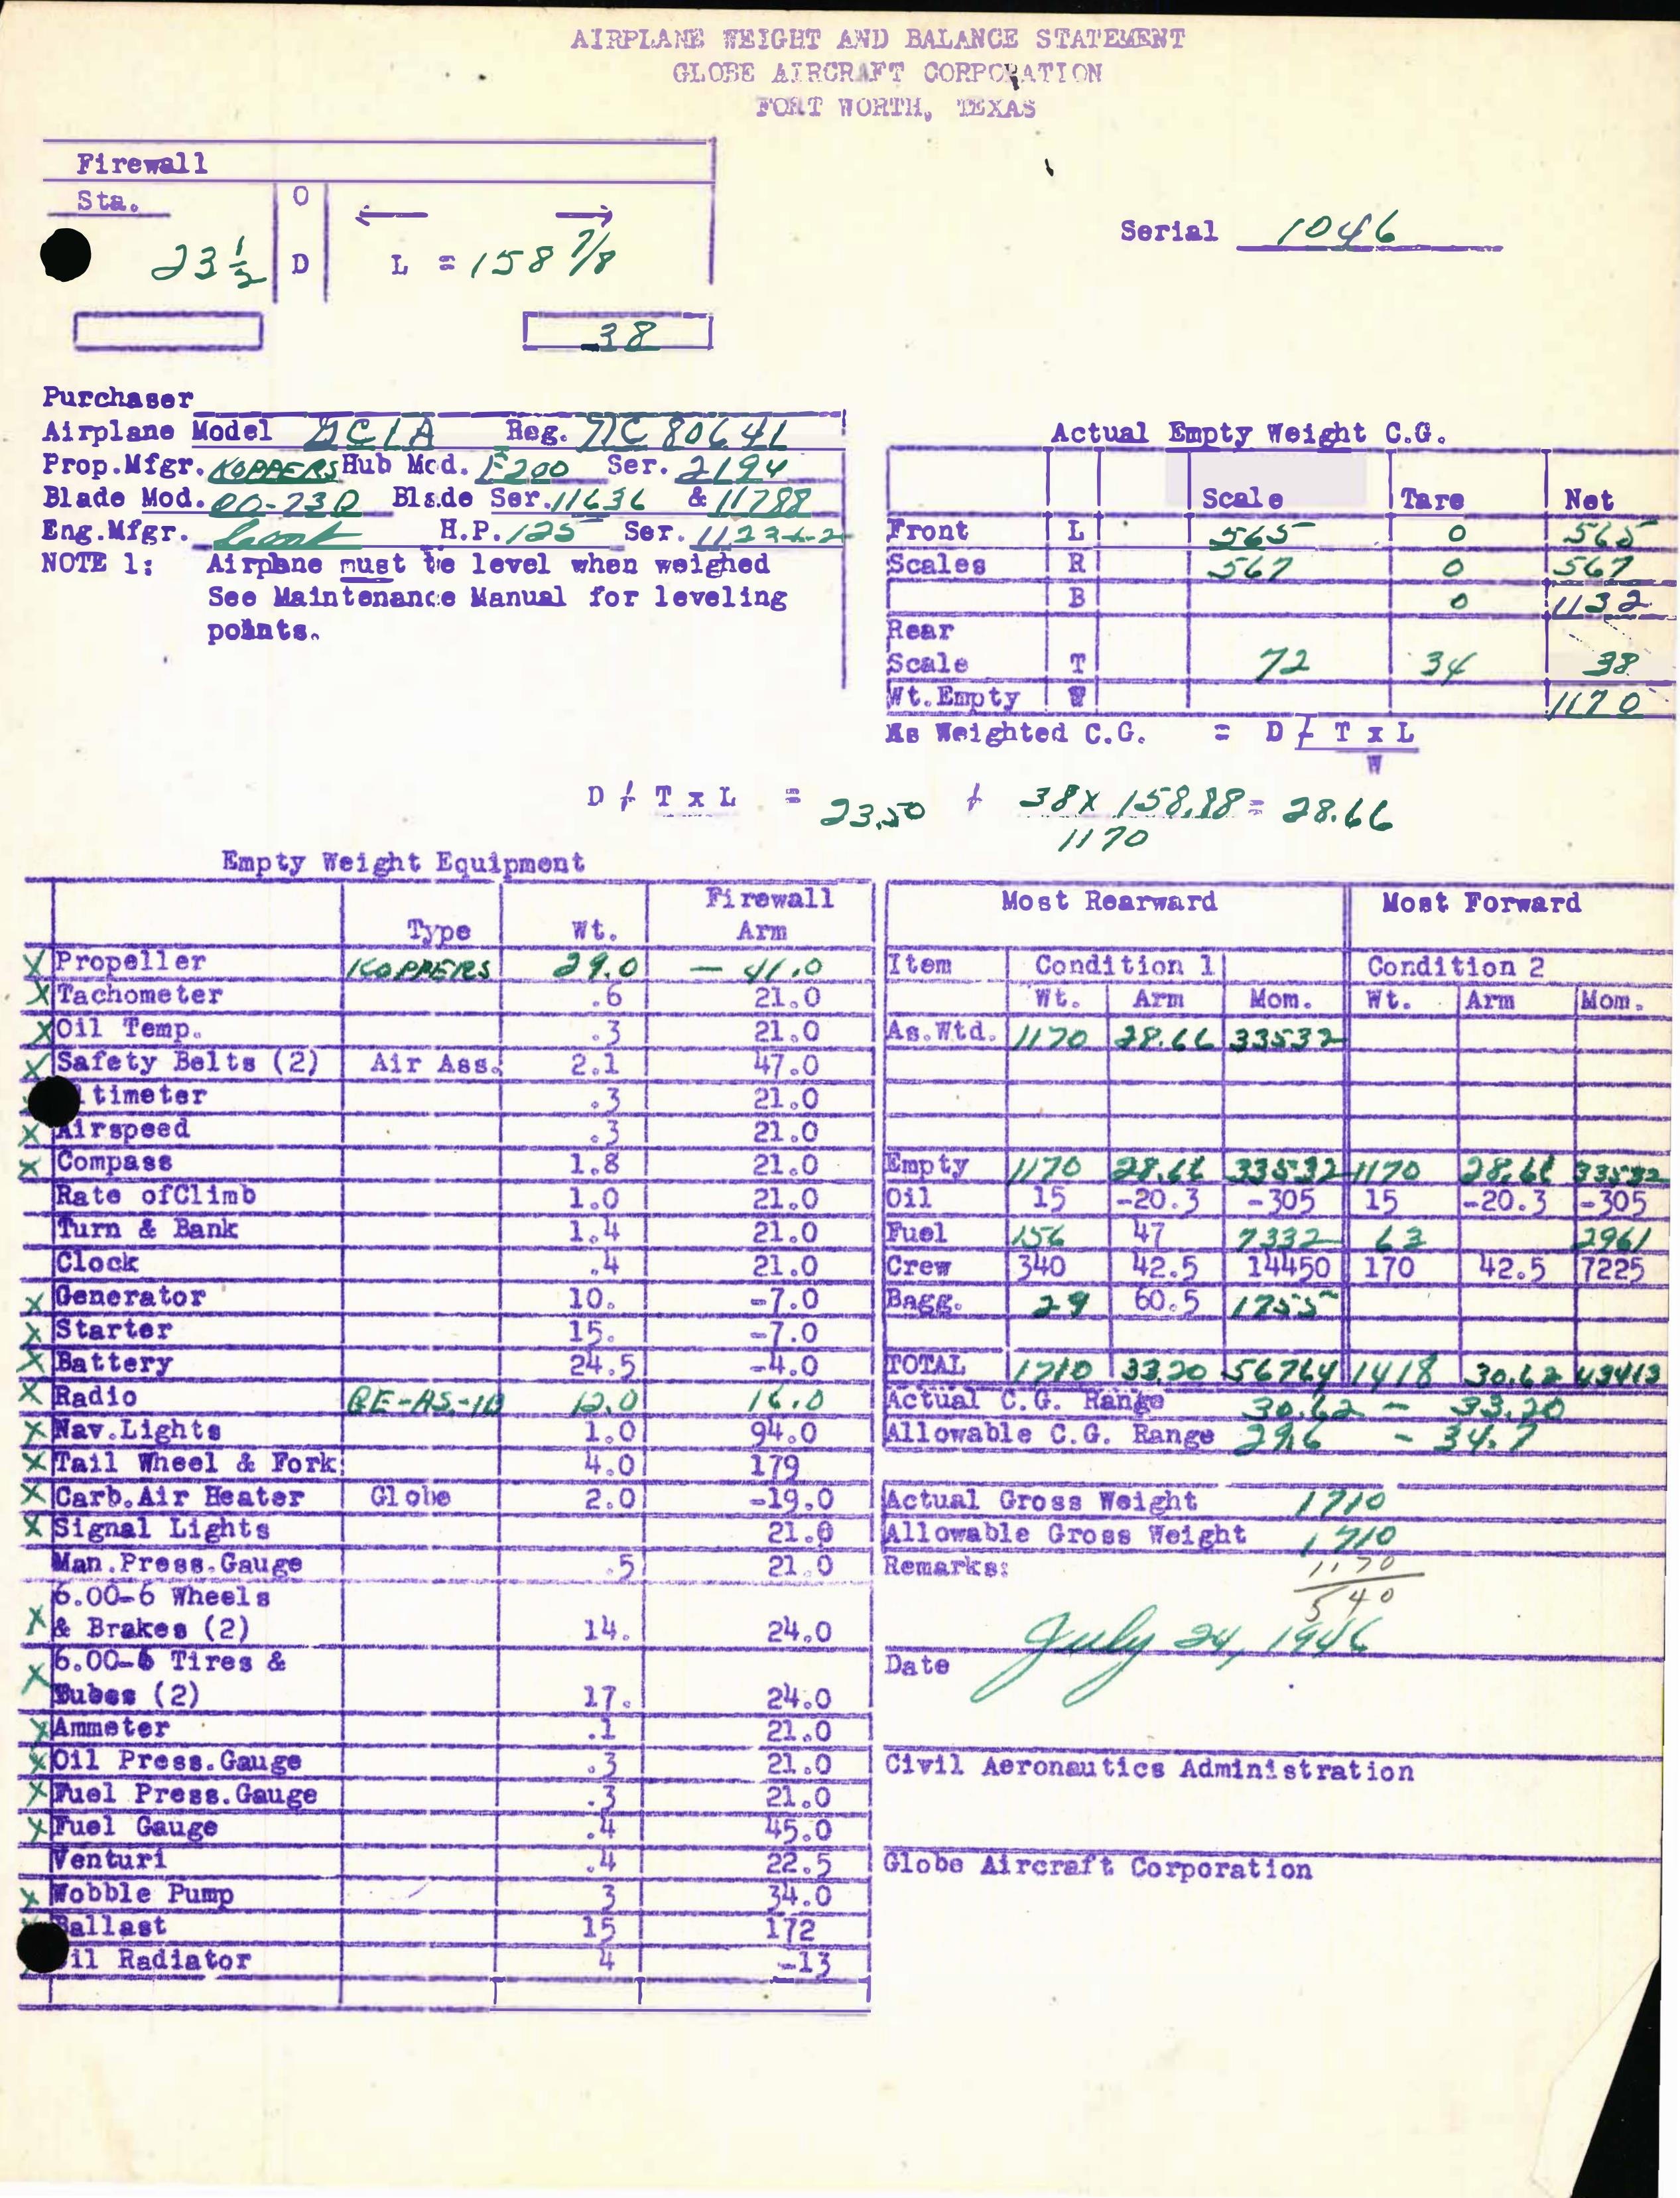 AIRPLANE WEIGHT AND BALANCE STATEMENT
GLOBE AIRCRAFT CORPORATION
FORT WORTH, TEXAS
Firewall
Sta. O
23 1/2 D L = 158 7/8
38
Serial 1046
Purchaser
Airplane Model GC1A Reg. NC 80641
Prop.Mfgr. KOPPERS Hub Mod. F200 Ser. 2194
Blade Mod. 00-73D Blade Ser. 11636 & 11788
Eng.Mfgr. Cont H.P. 125 Ser.
NOTE 1: Airplane must be level when weighed
See Maintenance Manual for leveling
points.
Actual Empty Weight C.G.
Scale Tare Net
Front L 565 0 565
Scales R 567 0 567
B 0 1132
Rear
Scale T 72 34 38
Wt.Empty W 1170
As Weighted C.G. = D + T x L
W
D + T x L = 23.50 + 38 x 158.88 = 28.66
1170
Empty Weight Equipment
Type Wt. Firewall Arm
X Propeller KOPPERS 29.0 - 41.0
X Tachometer .6 21.0
X Oil Temp. .3 21.0
X Safety Belts (2) Air Ass. 2.1 47.0
timeter .3 21.0
X Airspeed .3 21.0
X Compass 1.8 21.0
Rate ofClimb 1.0 21.0
Turn & Bank 1.4 21.0
Clock .4 21.0
X Generator 10. -7.0
X Starter 15. -7.0
X Battery 24.5 -4.0
X Radio GE-AS-1B 12.0 16.0
X Nav.Lights 1.0 94.0
X Tail Wheel & Fork 4.0 179
X Carb.Air Heater Globe 2.0 -19.0
X Signal Lights 21.0
Man.Press.Gauge .5 21.0
6.00-6 Wheels
X & Brakes (2) 14. 24.0
X 6.00-6 Tires &
Tubes (2) 17. 24.0
X Ammeter .1 21.0
X Oil Press.Gauge .3 21.0
X Fuel Press.Gauge .3 21.0
X Fuel Gauge .4 45.0
Venturi .4 22.5
X Wobble Pump 3 34.0
Ballast 15 172
il Radiator 4 -13
Most Rearward Most Forward
Item Condition 1 Condition 2
Wt. Arm Mom. Wt. Arm Mom.
As.Wtd. 1170 28.66 33532
Empty 1170 28.66 33532 1170 28.66 33532
Oil 15 -20.3 -305 15 -20.3 -305
Fuel 156 47 7332 63 2961
Crew 340 42.5 14450 170 42.5 7225
Bagg. 29 60.5 1755
TOTAL 1710 33.20 56764 1418 30.62 43413
Actual C.G. Range 30.62 - 33.20
Allowable C.G. Range 29.6 - 34.7
Actual Gross Weight 1710
Allowable Gross Weight 1710
Remarks: 1170
540
July 24, 1946
Date
Civil Aeronautics Administration
Globe Aircraft Corporation